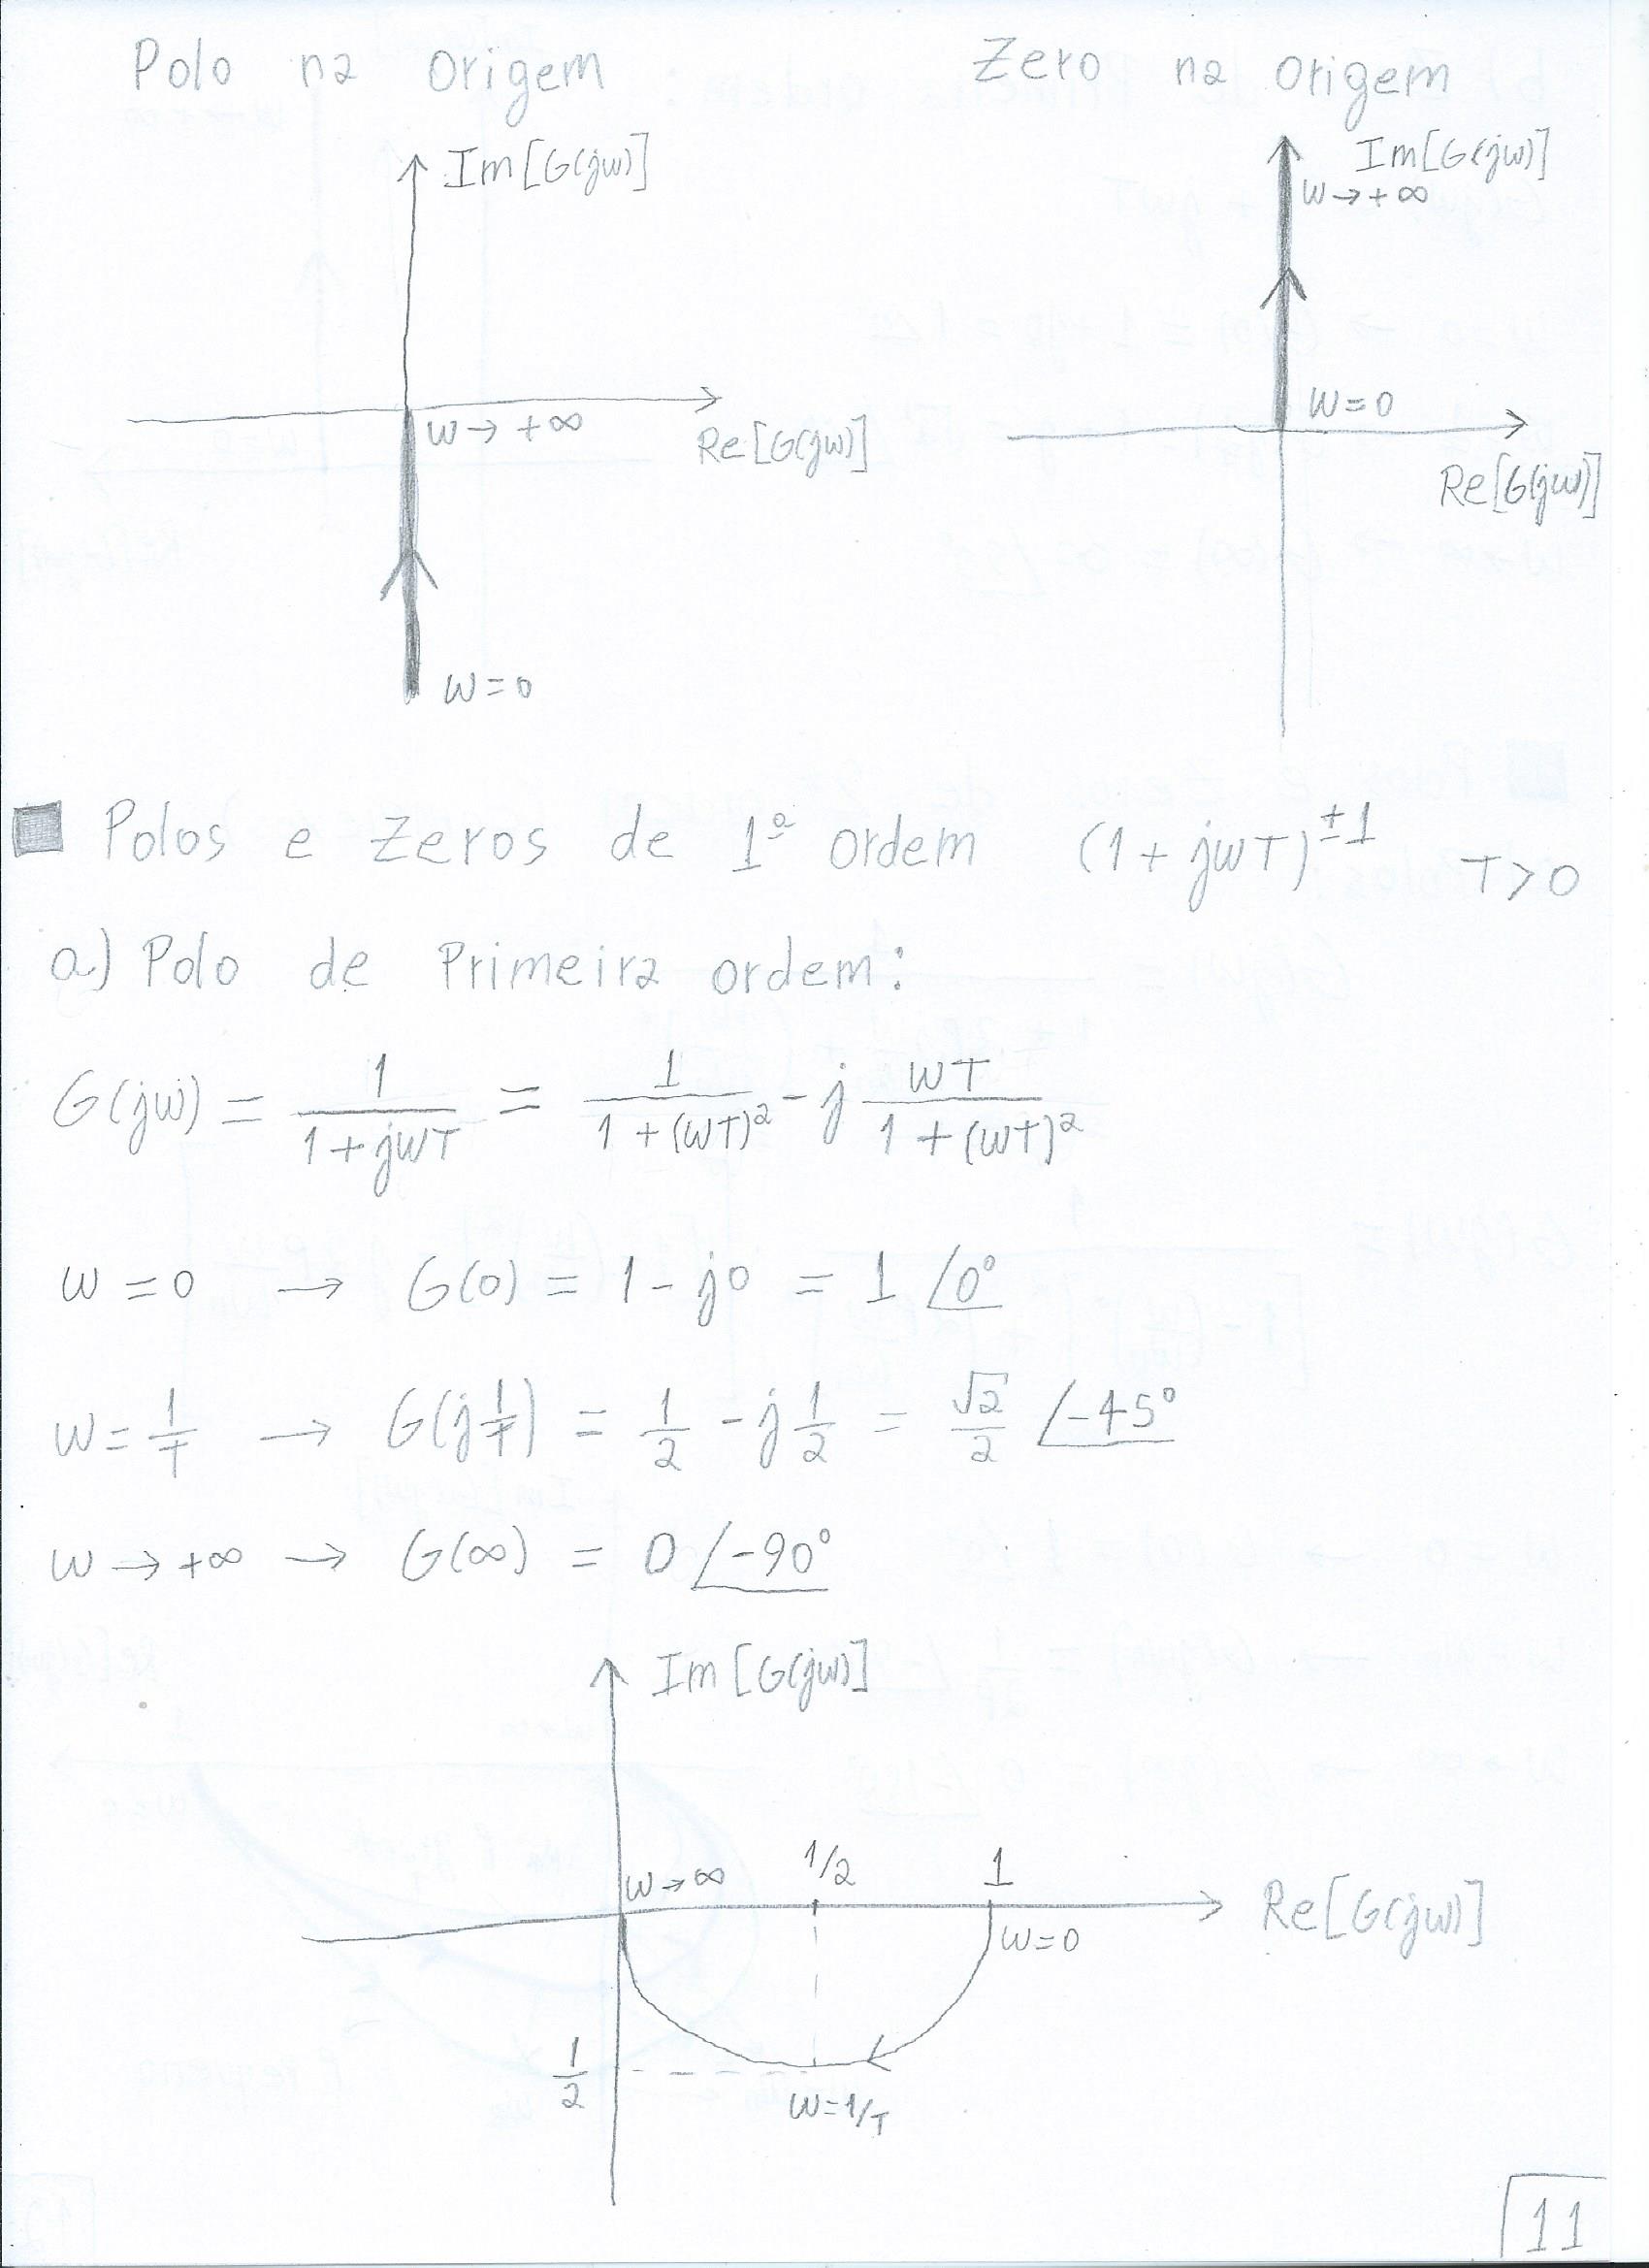 Polo na origem
Im[G(jω)]
ω→ +∞
Re[G(jω)]
ω=0
Zero na origem
Im[G(jω)]
ω→+∞
ω=0
Re[G(jω)]
Polos e zeros de 1ª ordem (1 + jωT)^±1 T>0
a) Polo de Primeira ordem:
G(jω) = 1/(1+jωT) = 1/(1+(ωT)²) - j ωT/(1+(ωT)²)
ω = 0 → G(0) = 1 - j0 = 1 ∠0°
ω = 1/T → G(j 1/T) = 1/2 - j 1/2 = √2/2 ∠-45°
ω → +∞ → G(∞) = 0 ∠-90°
Im [G(jω)]
ω→∞ 1/2 1
Re[G(jω)]
ω=0
1/2
ω=1/T
11